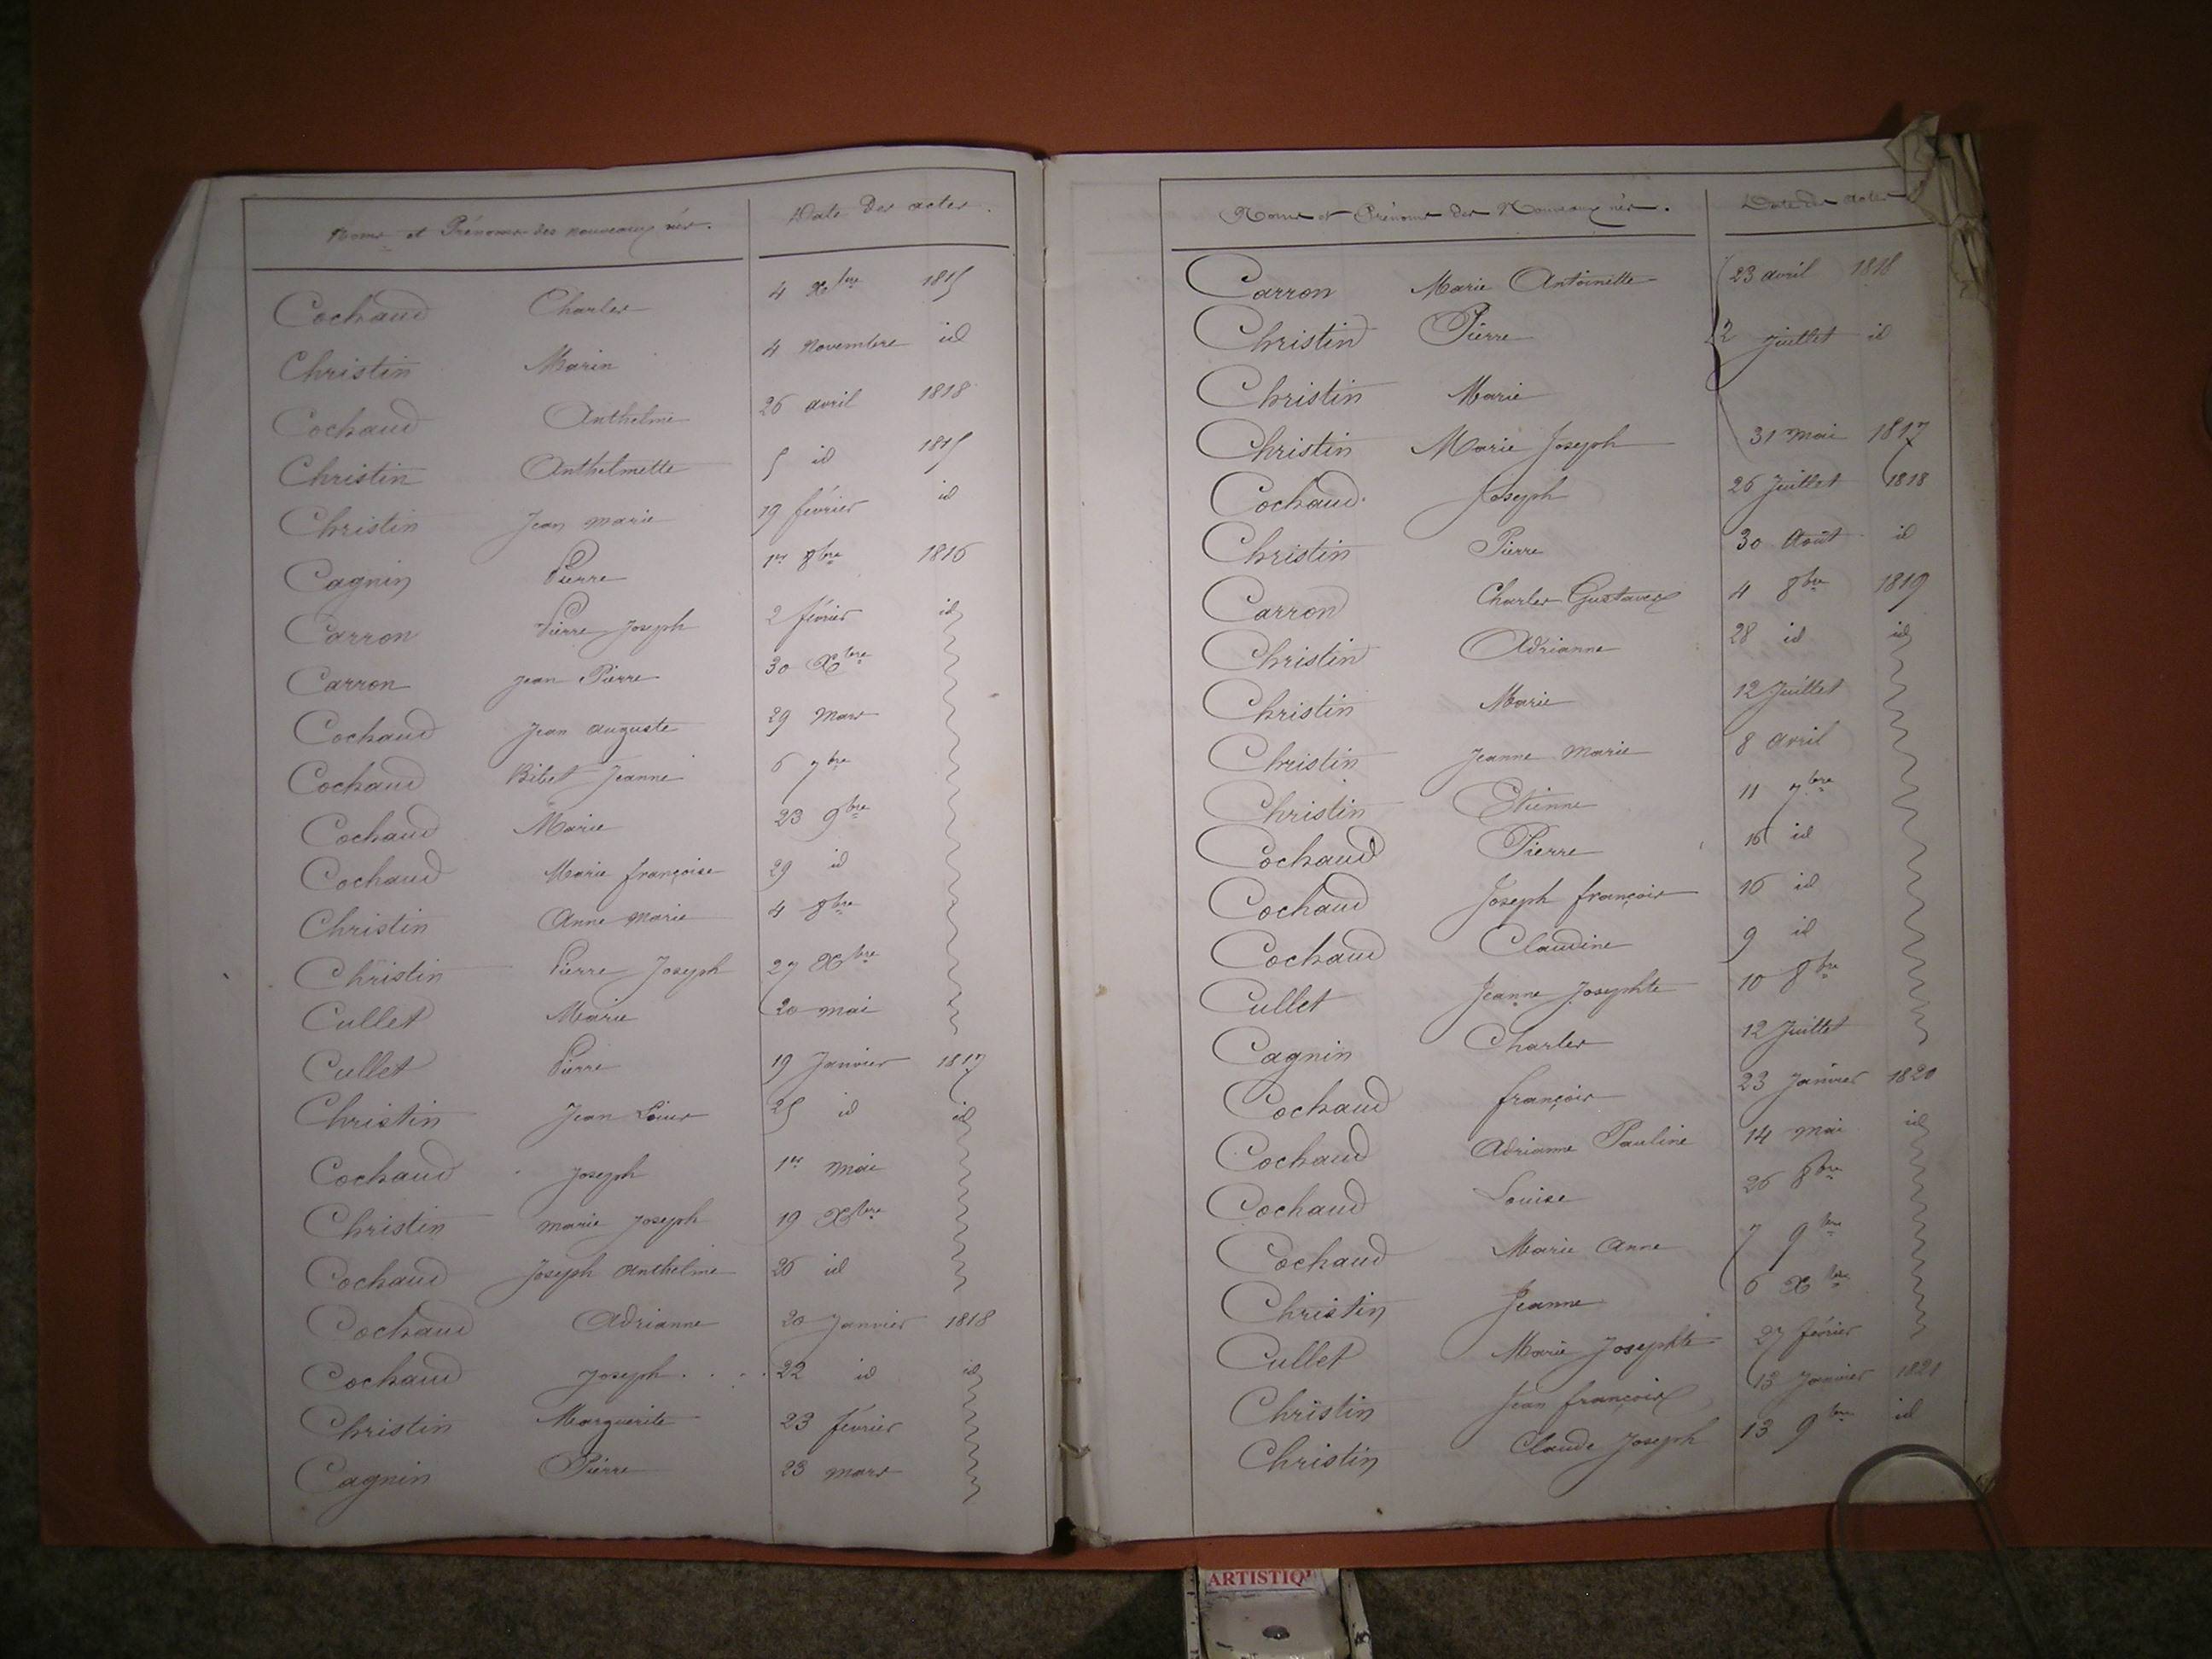 Noms et Prénoms des nouveaux nés. Date des actes.
Cochaud Charles 4 Xbre 1815
Christin Marin 4 Novembre id
Cochaud Anthelme 26 avril 1818
Christin Anthelmette 5 id 1815
Christin Jean marie 19 février id
Cagnin Pierre 1er 8bre 1816
Carron Pierre Joseph 2 février id
Carron Jean Pierre 30 Xbre
Cochaud Jean auguste 29 Mars
Cochaud Bibet Jeanne 6 7bre
Cochaud Marie 23 9bre
Cochaud Marie françoise 29 id
Christin Anne Marie 4 8bre
Christin Pierre Joseph 27 Xbre
Cullet Marie 20 mai
Cullet Pierre 19 Janvier 1817
Christin Jean Louis 25 id id
Cochaud Joseph 1er mai
Christin marie Joseph 19 Xbre
Cochaud Joseph Anthelme 26 id
Cochaud Adrianne 20 Janvier 1818
Cochaud Joseph . . . 22 id id
Christin Marguerite 23 février
Cagnin Pierre 23 mars
Noms et Prénoms des Nouveaux nés. Date des actes
Carron Marie Antoinette 23 avril 1818
Christin Pierre 2 juillet id
Christin Marie
Christin Marie Joseph 31 mai 1817
Cochaud Joseph 26 Juillet 1818
Christin Pierre 30 Août id
Carron Charles Gustave 4 8bre 1819
Christin Adrianne 28 id id
Christin Marie 12 Juillet
Christin Jeanne Marie 8 avril
Christin Etienne 11 7bre
Cochaud Pierre 16 id
Cochaud Joseph françois 16 id
Cochaud Claudine 9 id
Cullet Jeanne Josephte 10 8bre
Cagnin Charles 12 Juillet
Cochaud françois 23 Janvier 1820
Cochaud Adrianne Pauline 14 mai id
Cochaud Louise 26 8bre
Cochaud Marie Anne 7 9bre
Christin Jeanne 6 Xbre
Cullet Marie Josephte 27 février
Christin Jean françois 13 Janvier 1821
Christin Claude Joseph 13 9bre id
ARTISTIQ